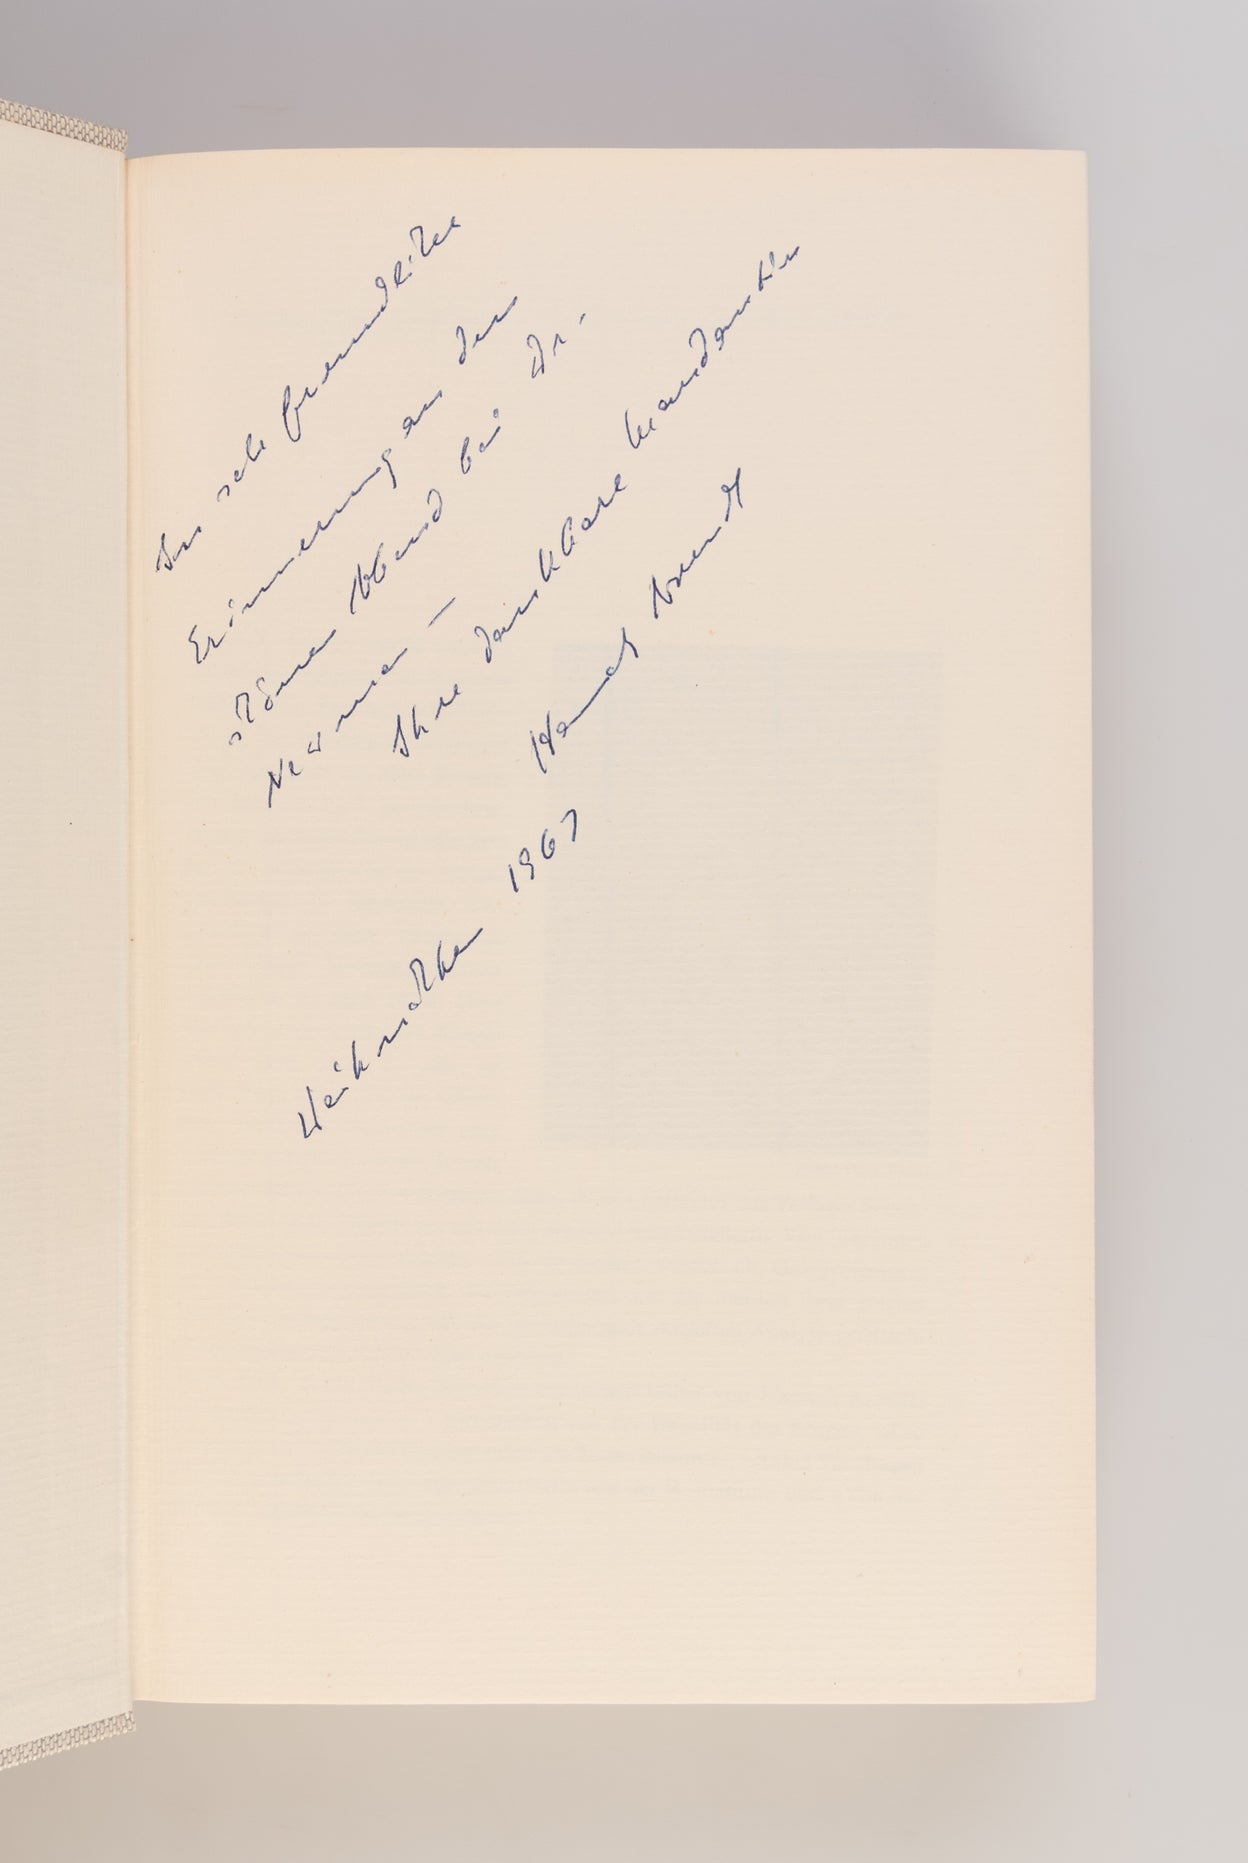 In sehr freundlicher
Erinnerung an den
schönen Abend bei Dr.
Neumann –
Ihre dankbare
Hannah Arendt
Weihnachten 1967